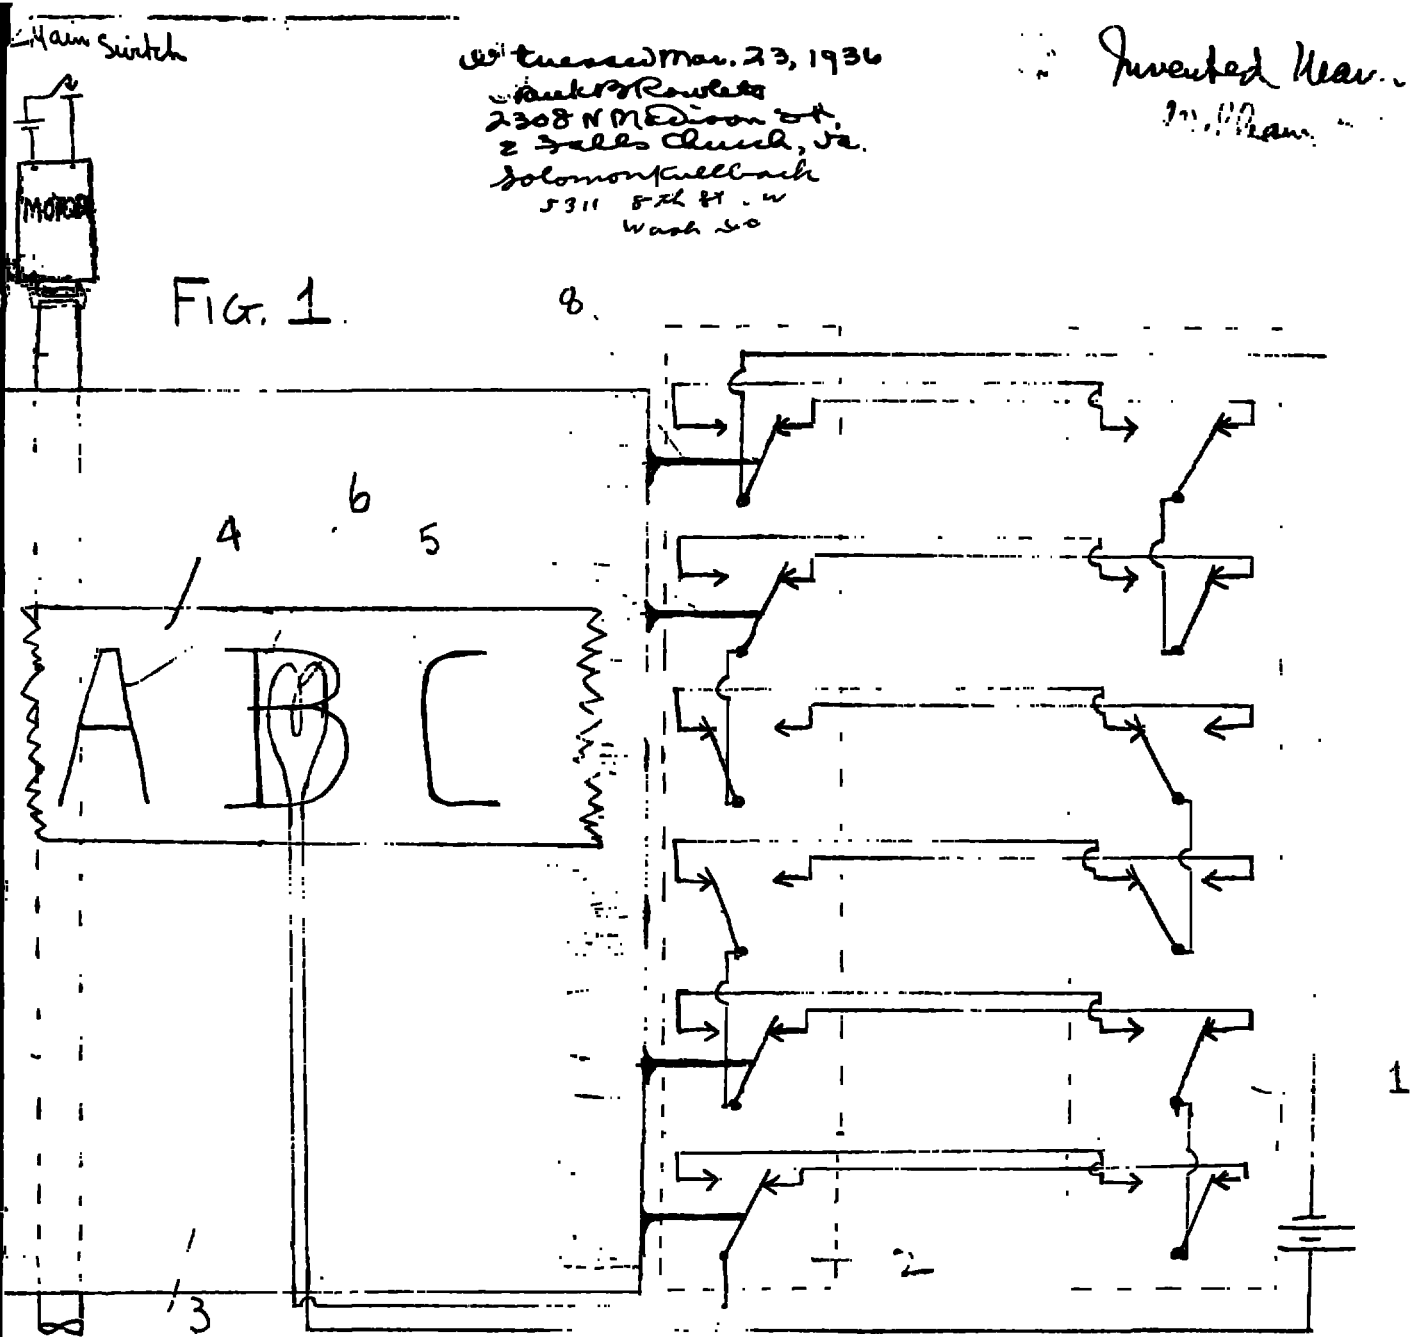 Main Switch
Witnessed Mar. 23, 1936
Frank B Rowlett
2308 N Madison St.
Falls Church, Va.
Solomon Kullback
5311 8th St. W
Wash
Invented Mar.
MOTOR
FIG. 1.
8
6
4
5
A B C
1
2
3